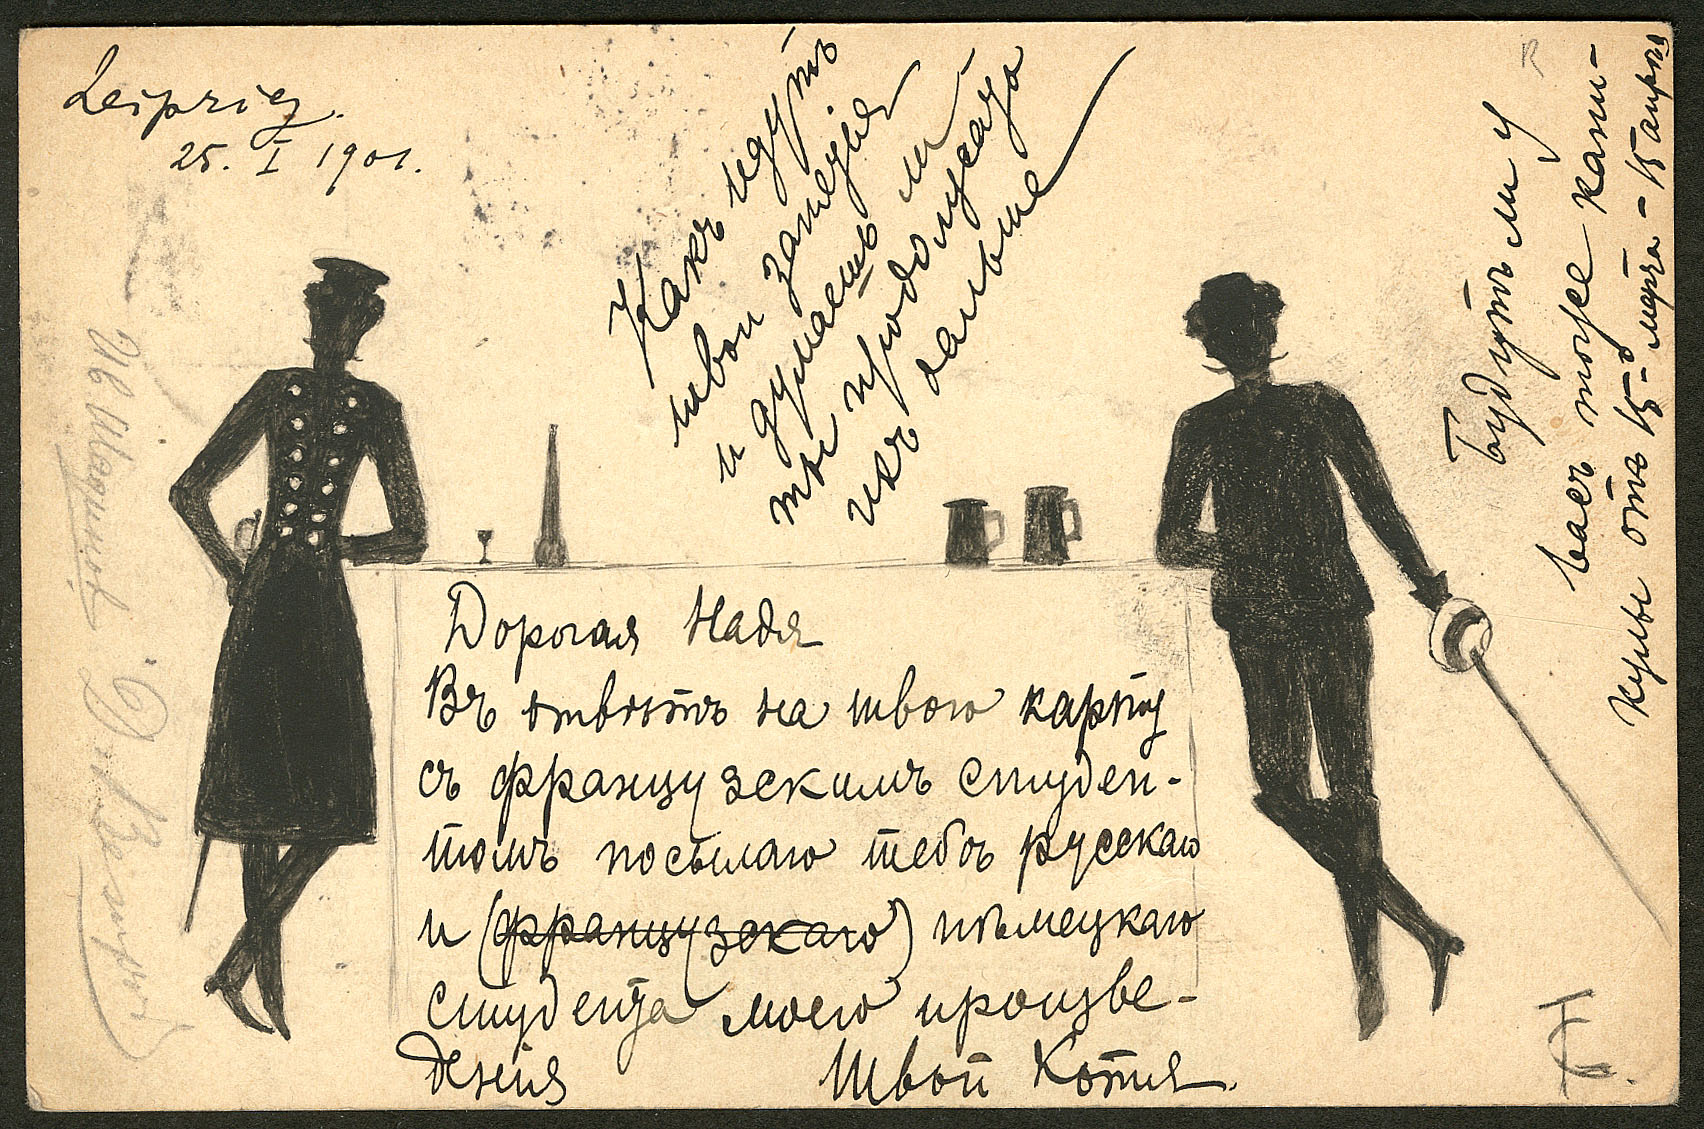 Leipzig.
25. I 1901.
Какъ идутъ
твои занятія
и думаешь ли
ты продолжать
ихъ дальше
Будутъ ли у
васъ тоже кани-
кулы отъ 15-го марта - 15 апрѣля
Дорогая Надя
Въ отвѣтъ на твою карту
съ французскимъ студен-
томъ посылаю тебѣ русскаго
и (французскаго) нѣмецкаго
студента моего произве-
денія Твой Котя.